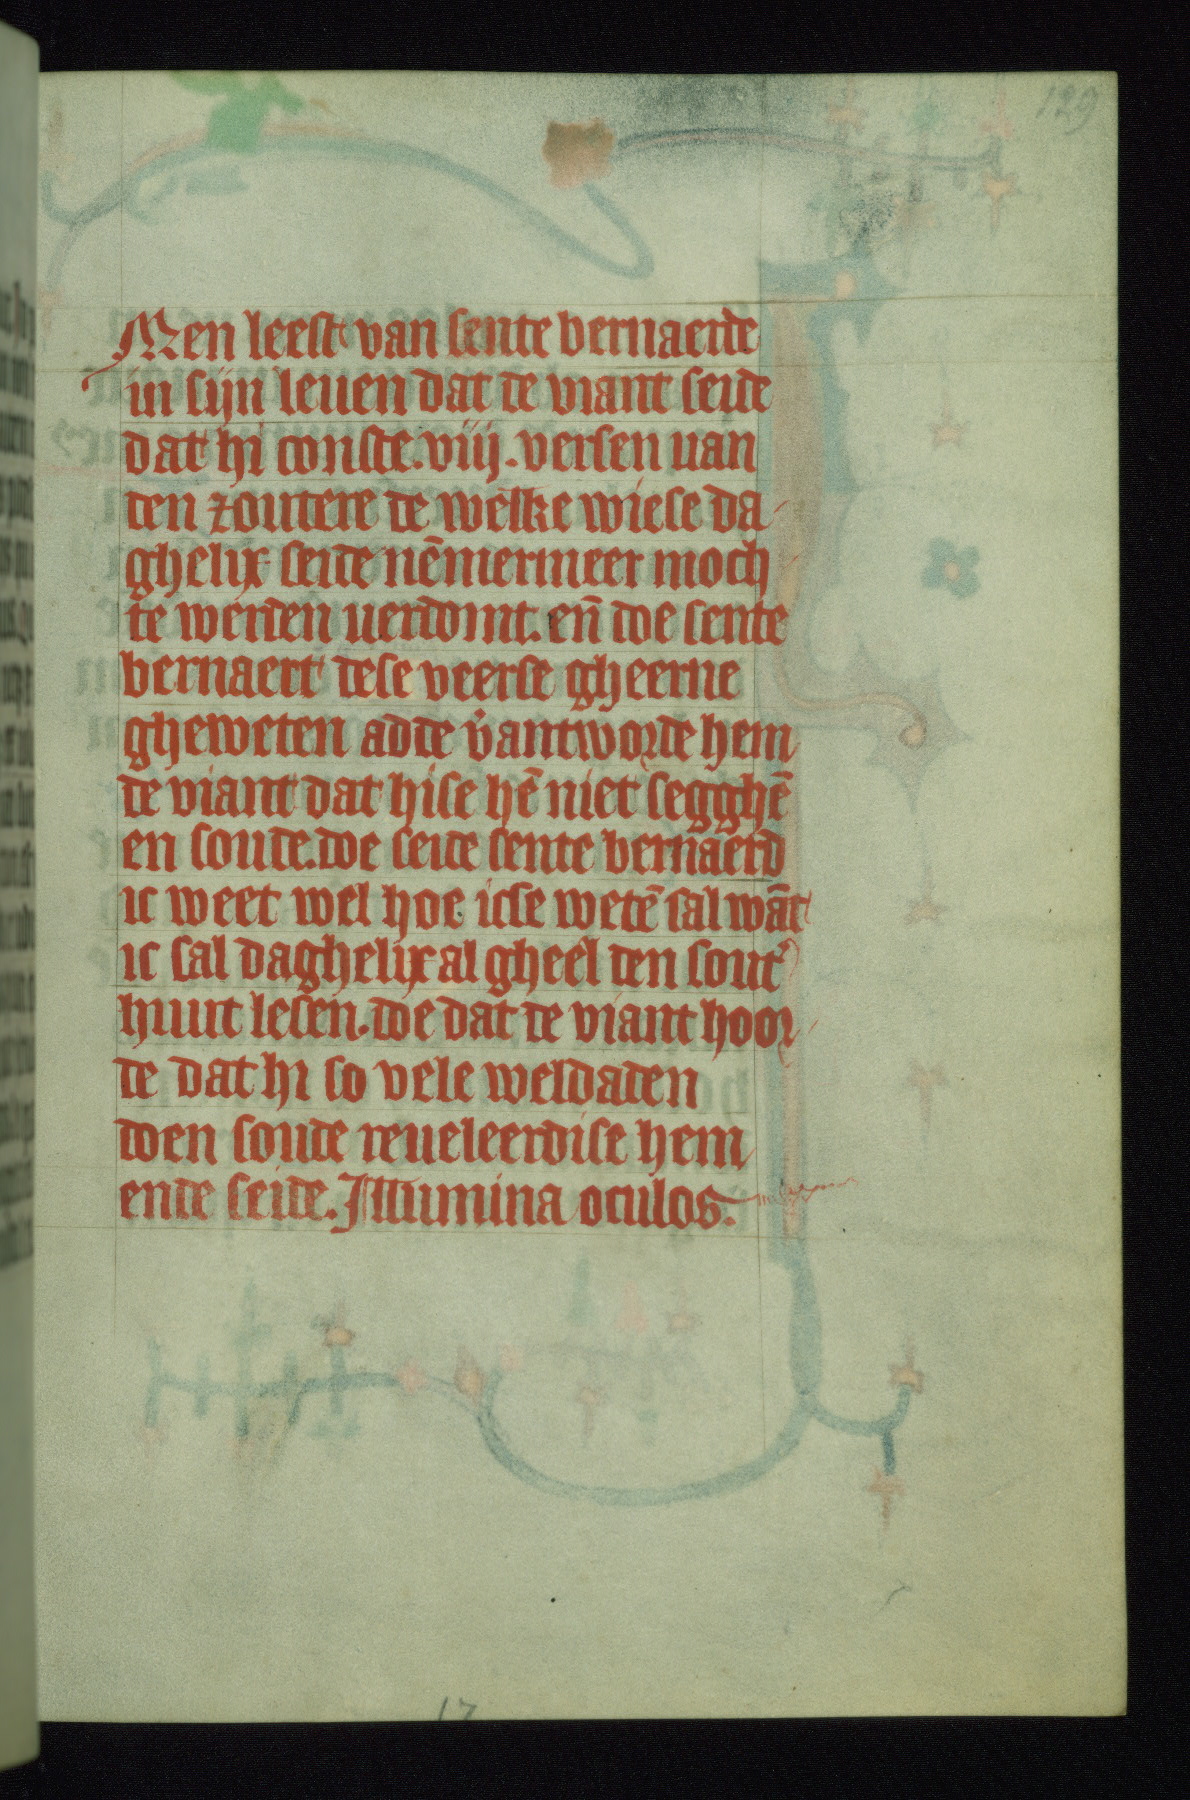 129
Men leest van sente bernaerde
in sijn leuen dat de viant seide
dat hi conste .viij. versen uan
den zoutere de welke wiese da
ghelix seide nēmermeer moch
te werden uerdomt. en̄ doe sente
bernaert dese veerse gheerne
gheweten adde v̓antworde hem
de viant dat hise hē niet segghē
en soude. doe seide sente bernaerd
ic weet wel hoe icse wetē sal wāt
ic sal daghelix al gheel den sout᾽
huut lesen. doe dat de viant hoor
de dat hi so vele weldaden
doen soude reueleerdise hem
ende seide. Illumina oculos.
17